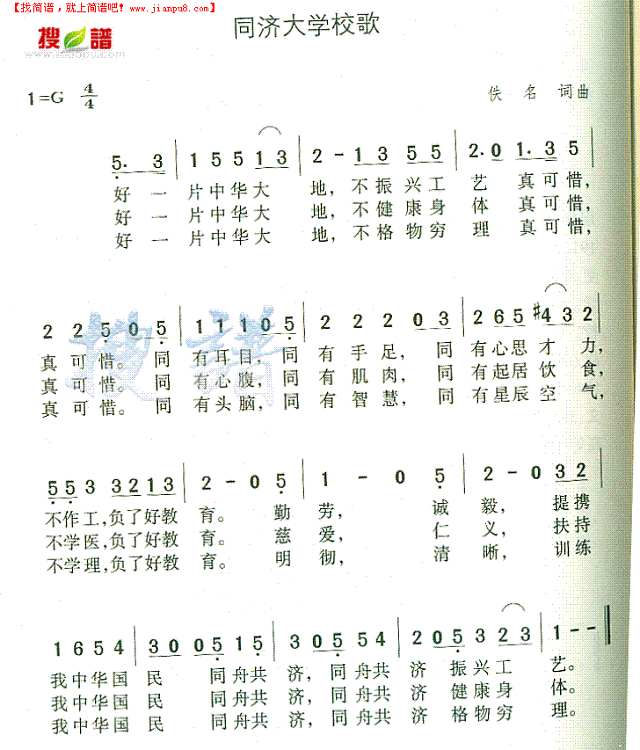 【找简谱,就上简谱吧 www.jianpu8.com】
搜谱
www.sooopu.com
同济大学校歌
1=G 4/4
佚 名 词曲
5. 3 | 1 5 5 1 3 | 2 - 1 3 5 5 | 2. 0 1. 3 5 |
好一片中华大 地,不振兴工 艺 真可惜,
好一片中华大 地,不健康身 体 真可惜,
好一片中华大 地,不格物穷 理 真可惜,
2 2 5 0 5 | 1 1 1 0 5 | 2 2 2 0 3 | 2 6 5 #4 3 2 |
真可惜。同 有耳目,同 有手足,同 有心思才力,
真可惜。同 有心腹,同 有肌肉,同 有起居饮食,
真可惜。同 有头脑,同 有智慧,同 有星辰空气,
5 5 3 3 2 1 3 | 2 - 0 5 | 1 - 0 5 | 2 - 0 3 2 |
不作工,负了好教 育。勤 劳, 诚 毅, 提携
不学医,负了好教 育。慈 爱, 仁 义, 扶持
不学理,负了好教 育。明 彻, 清 晰, 训练
1 6 5 4 | 3 0 0 5 1 5 | 3 0 5 5 4 | 2 0 5 3 2 2 3 | 1 - -
我中华国 民 同舟共 济,同舟共 济 振兴工 艺。
我中华国 民 同舟共 济,同舟共 济 健康身 体。
我中华国 民 同舟共 济,同舟共 济 格物穷 理。
搜谱